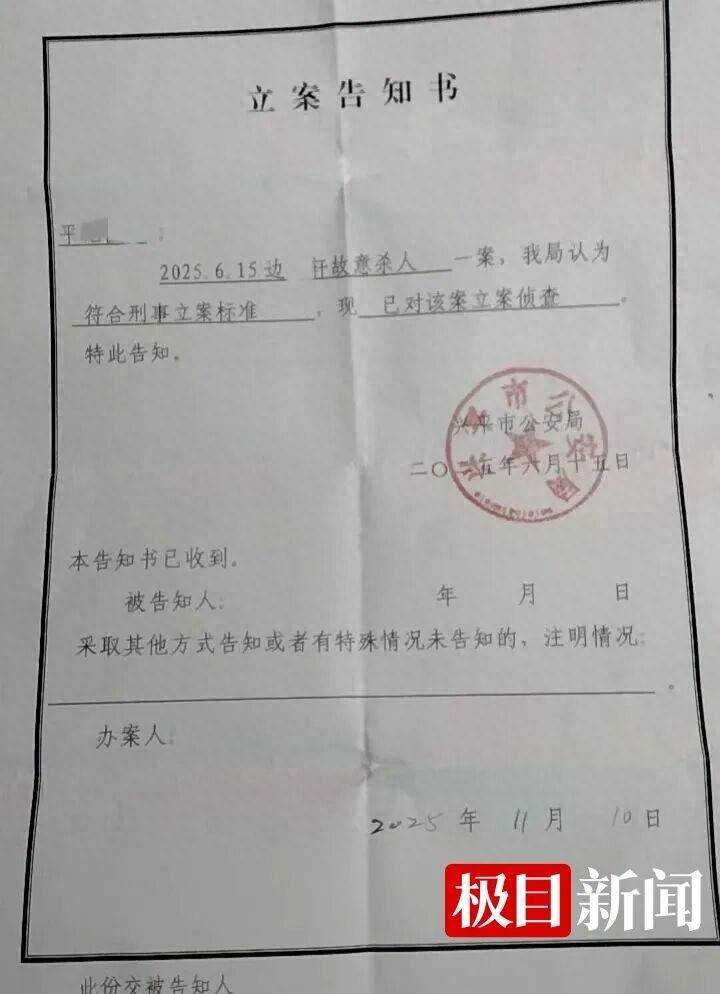 立案告知书
平 :
2025.6.15边 钎故意杀人 一案，我局认为
符合刑事立案标准 ，现 已对该案立案侦查 。
特此告知。
兴平市公安局
二〇 五年六月十五日
本告知书已收到。
被告知人: 年 月 日
采取其他方式告知或者有特殊情况未告知的，注明情况:
。
办案人:
2025 年 11 月 10 日
极目新闻
此份交被告知人